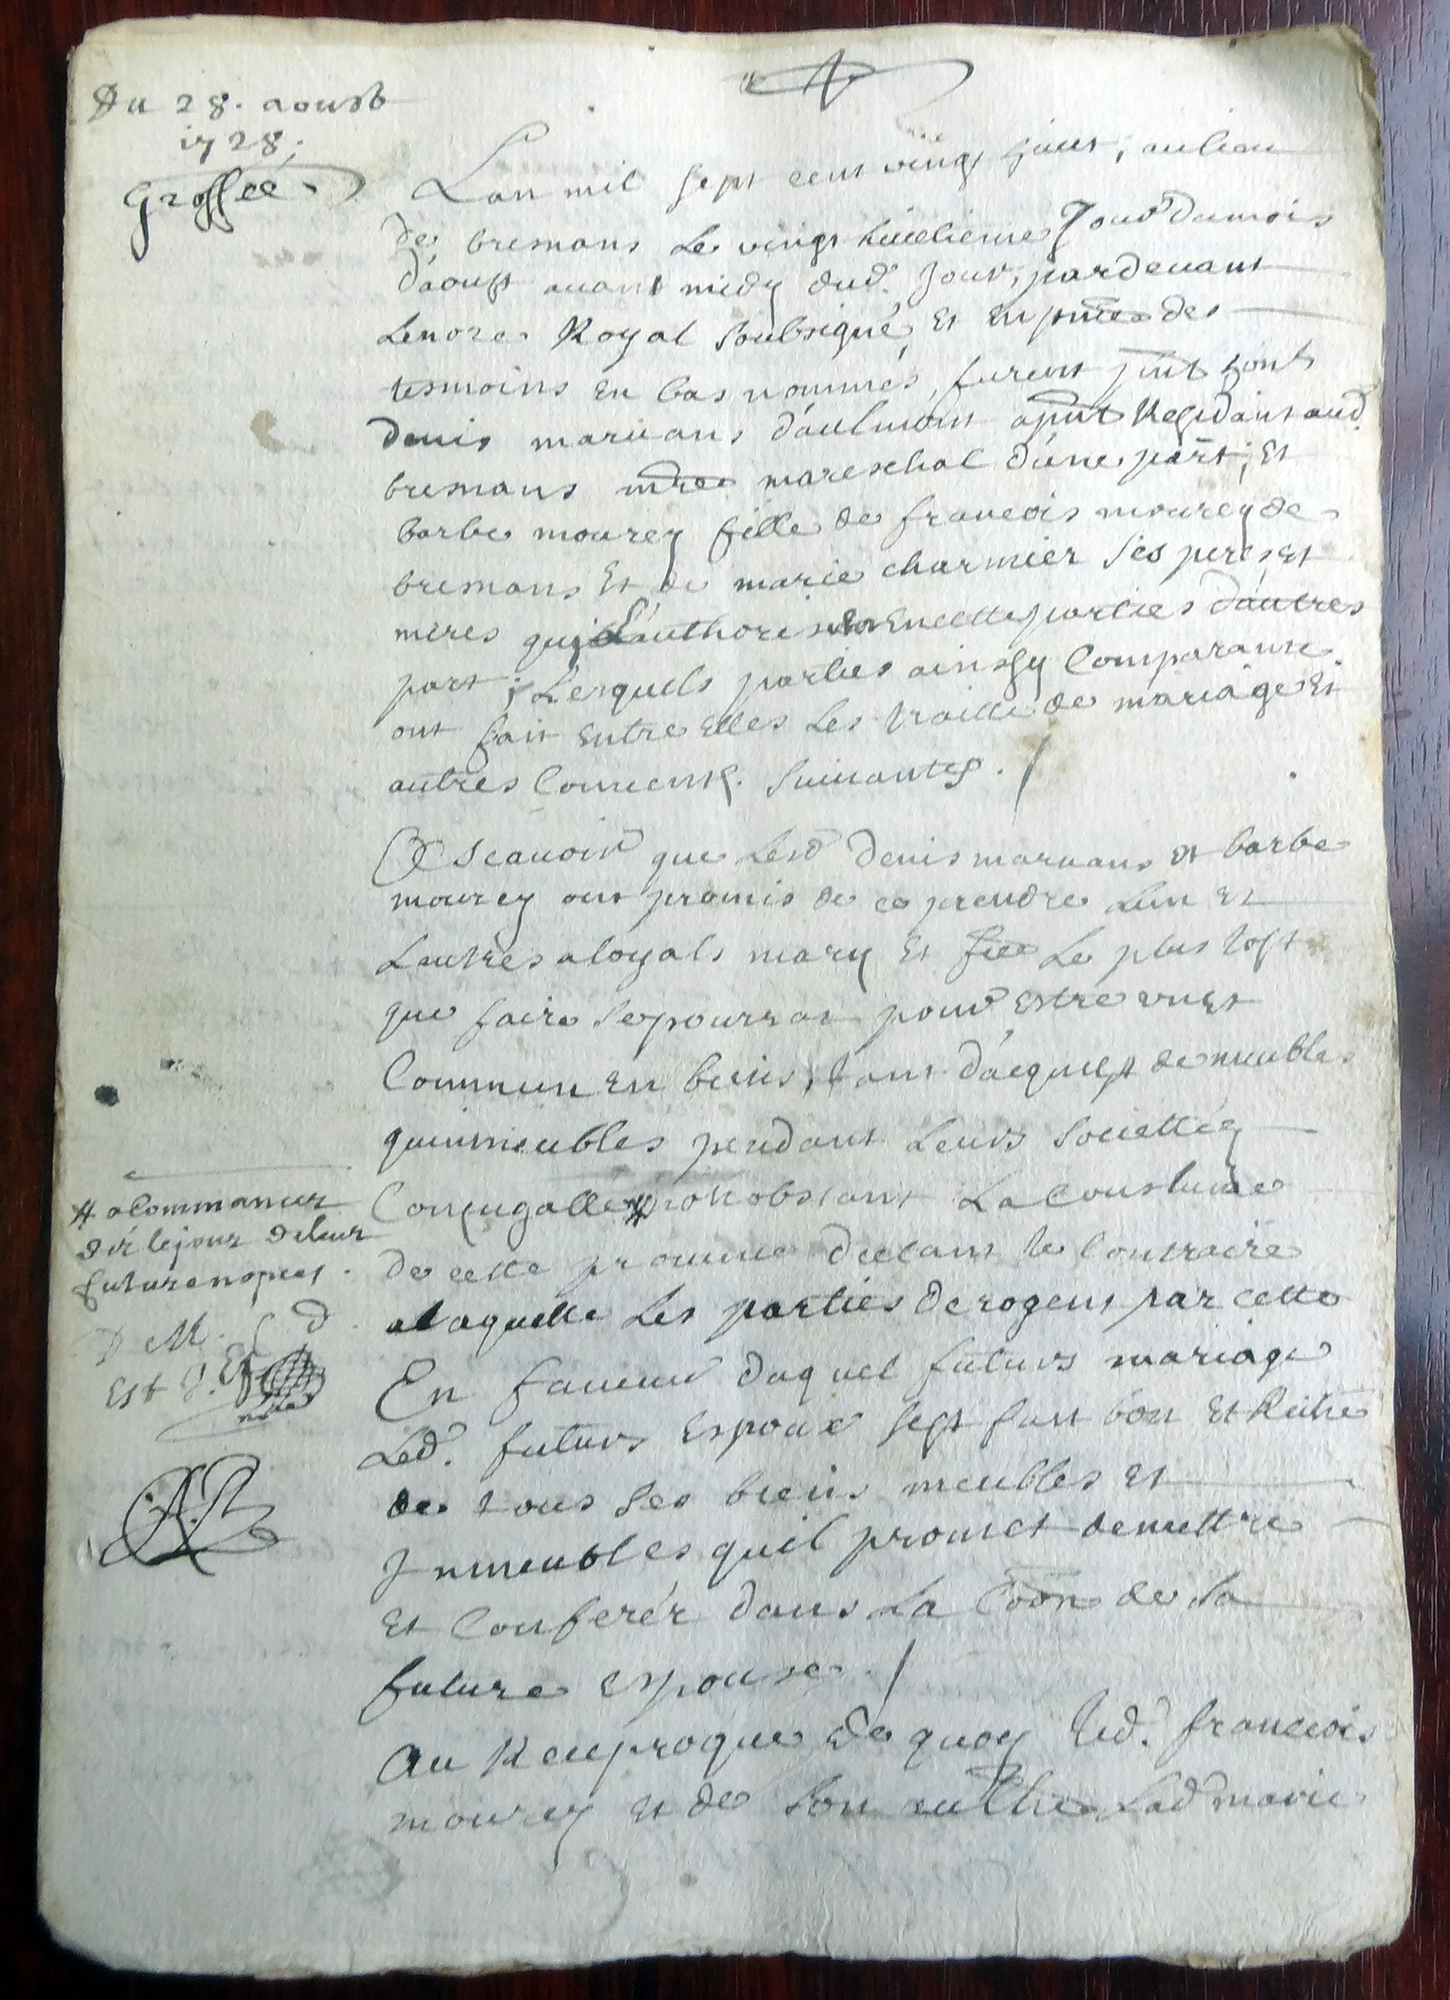 Du 28. aoust
1728.
Grossee
Lan mil sept cent vingt huict, au lieu
de bremans le vingt huictieme Jour du mois
d'aoust avant midy dud. Jour, pardevant
Le nore Royal soubsigné, et en pnce des
tesmoins en bas nommés, furent pnt
denis marvans d'aulmont apnt Residant aud.
bremans mre mareschal d'une part; Et
barbe mourey fille de francois mourey de
bremans Et de marie charmier ses pere et
meres qui L'authorisent En cette partie d'autres
part; Lesquels parties ainssy Comparante
ont fait entre elles Les traitté de mariage Et
autres Convent. suivantes. /
A Scavoir que Lesd denis marvans et barbe
mourey ont promis de ce prendre Lun et
Lautres a loyals mary Et fee Le plus tost
que faire se pourrat pour Estre unes
Commun en biens, tant d'acquest de meubles
quimmeubles pendant Leurs societtéz
Conjugalle # nonobstant La Coustume
de cette province dictant le Contraire
a laquelle Les parties derogent par cette
En faveur duquel futurs mariage
Led. futurs Espoux sest fait bon Et Riche
de tous ses biens meubles et
Immeubles quil promet de mettre
Et Conferér dans La Coon de sa
future espouse. /
Au Reciproque de quoy led. francois
mourey et de son authe Lad marie
# a Commancer
dez le jour de leur
future nopces.
D M. d
Est